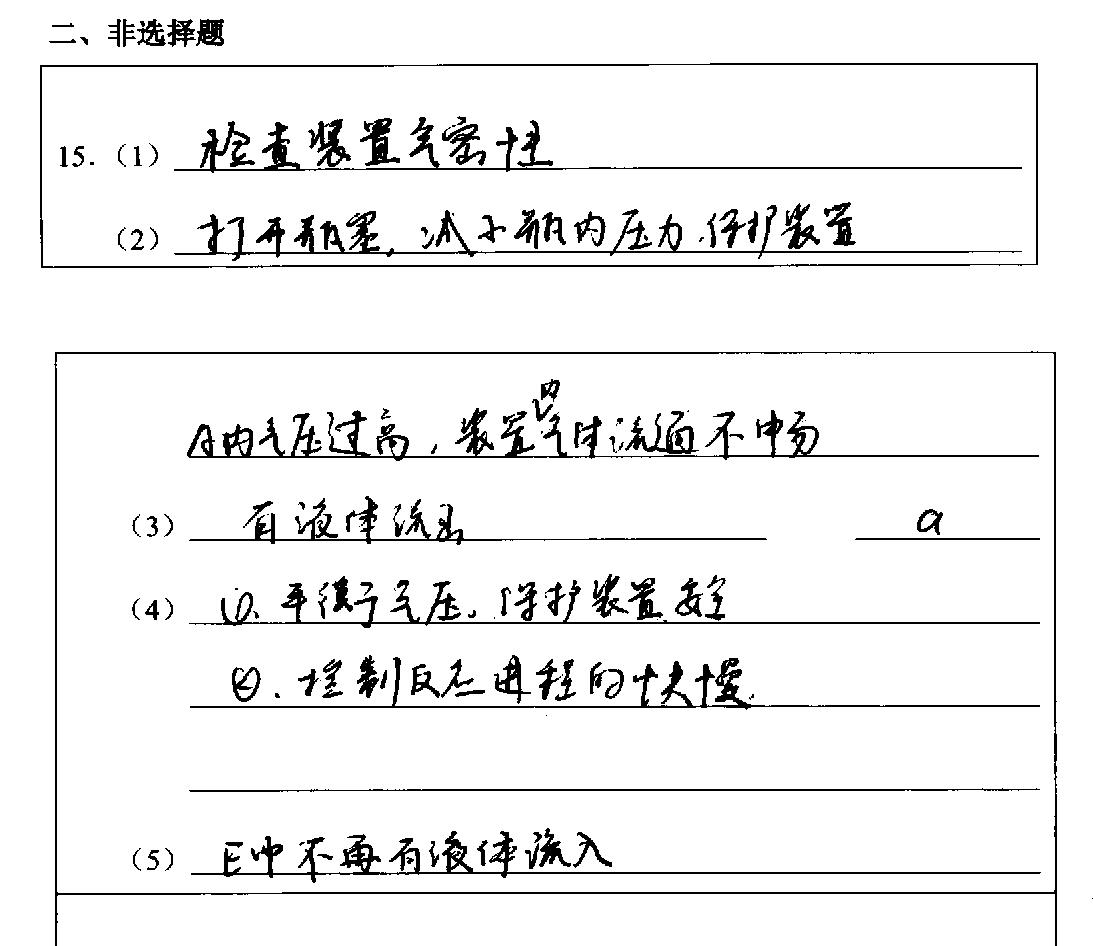 二、非选择题
15.（1） 检查装置气密性
（2） 打开瓶塞，减小瓶内压力.保护装置
A内气压过高，装置内气体流通不畅
（3） 有液体流出 a
（4） ①. 平衡气压。保护装置安全
②. 控制反应进程的快慢.
（5） E中不再有液体流入